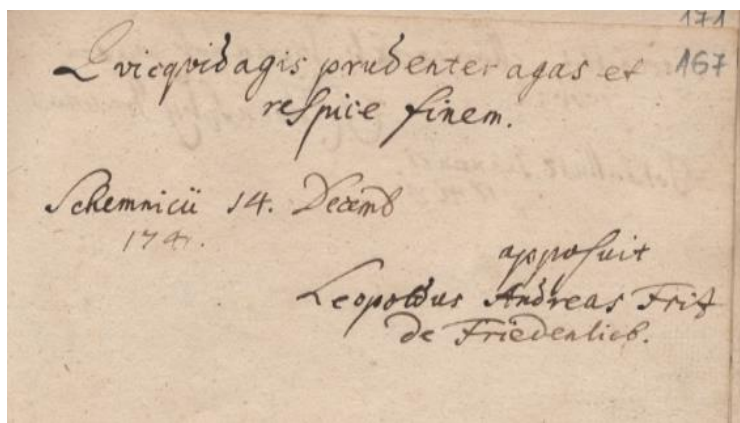 171
167
Quicquid agis prudenter agas et
respice finem.
Schemnicii 14. Decemb
174.
apposuit
Leopoldus Andreas Frit
de Friedenlieb.